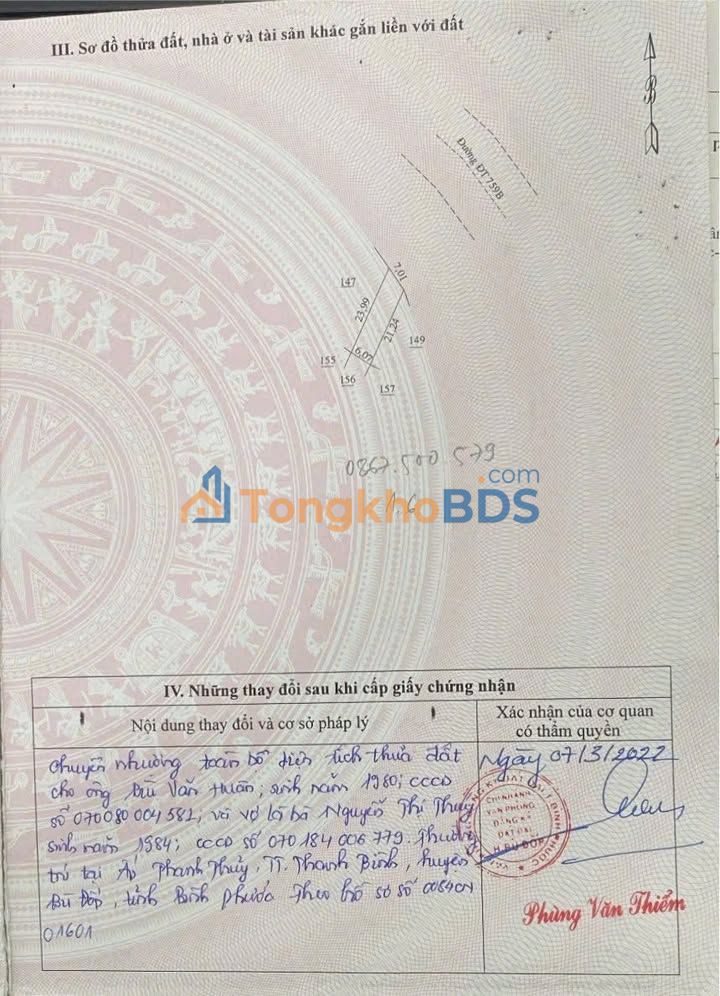 III. Sơ đồ thửa đất, nhà ở và tài sản khác gắn liền với đất
B
Đường ĐT759B
147
7,01
23,99
21,24
149
6,07
155
156
157
0867.500 579
1.6
TongkhoBDS.com
IV. Những thay đổi sau khi cấp giấy chứng nhận
Nội dung thay đổi và cơ sở pháp lý
Xác nhận của cơ quan
có thẩm quyền
Chuyển nhượng toàn bộ diện tích thửa đất
cho ông Văn Huấn; sinh năm 1980; CCCD
số 070080004582; và vợ là bà Nguyễn Thị Thuý
sinh năm 1984; CCCD số 070184006779. Thường
trú tại Ấp Thanh Thuỷ, TT. Thanh Bình, huyện
Bù Đốp, tỉnh Bình Phước Theo hồ sơ số
01601
Ngày 07/3/2022
CHI NHÁNH
VĂN PHÒNG
ĐĂNG KÝ
ĐẤT ĐAI
H.BÙ ĐỐP
Phùng Văn Thiểm